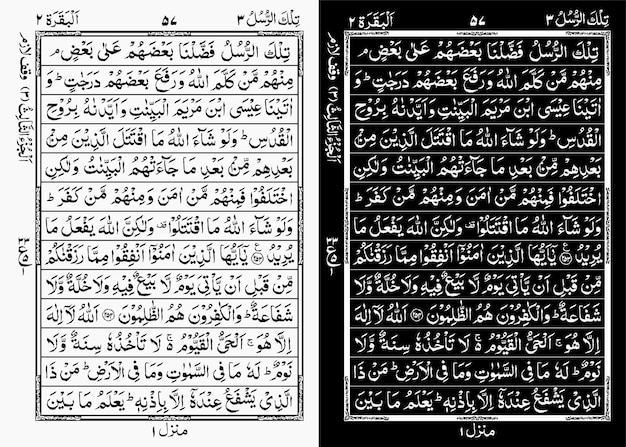 تِلْكَ الرُّسُلُ ٣
٥٧
اَلْبَقَرَة ٢
تِلْكَ الرُّسُلُ فَضَّلْنَا بَعْضَهُمْ عَلٰى بَعْضٍ ۘ
مِنْهُمْ مَّنْ كَلَّمَ اللّٰهُ وَرَفَعَ بَعْضَهُمْ دَرَجٰتٍ ؕ وَ
اٰتَيْنَا عِيْسَى ابْنَ مَرْيَمَ الْبَيِّنٰتِ وَاَيَّدْنٰهُ بِرُوْحِ
الْقُدُسِ ؕ وَلَوْ شَآءَ اللّٰهُ مَا اقْتَتَلَ الَّذِيْنَ مِنْۢ
بَعْدِهِمْ مِّنْۢ بَعْدِ مَا جَآءَتْهُمُ الْبَيِّنٰتُ وَلٰكِنِ
اخْتَلَفُوْا فَمِنْهُمْ مَّنْ اٰمَنَ وَمِنْهُمْ مَّنْ كَفَرَ ؕ
وَلَوْ شَآءَ اللّٰهُ مَا اقْتَتَلُوْا ۟ وَلٰكِنَّ اللّٰهَ يَفْعَلُ مَا
يُرِيْدُ ۧ يٰۤاَيُّهَا الَّذِيْنَ اٰمَنُوْۤا اَنْفِقُوْا مِمَّا رَزَقْنٰكُمْ
مِّنْ قَبْلِ اَنْ يَّاْتِيَ يَوْمٌ لَّا بَيْعٌ فِيْهِ وَلَا خُلَّةٌ وَّلَا
شَفَاعَةٌ ؕ وَالْكٰفِرُوْنَ هُمُ الظّٰلِمُوْنَ ۝ اَللّٰهُ لَاۤ اِلٰهَ
اِلَّا هُوَ ۚ اَلْحَيُّ الْقَيُّوْمُ ۚ لَا تَاْخُذُهٗ سِنَةٌ وَّلَا
نَوْمٌ ؕ لَهٗ مَا فِي السَّمٰوٰتِ وَمَا فِي الْاَرْضِ ؕ مَنْ ذَا
الَّذِيْ يَشْفَعُ عِنْدَهٗۤ اِلَّا بِاِذْنِهٖ ؕ يَعْلَمُ مَا بَيْنَ
منزل ١
وقف لازم
اَلْجُزْءُ الثَّالِثُ (٣)
تِلْكَ الرُّسُلُ ٣
٥٧
اَلْبَقَرَة ٢
تِلْكَ الرُّسُلُ فَضَّلْنَا بَعْضَهُمْ عَلٰى بَعْضٍ ۘ
مِنْهُمْ مَّنْ كَلَّمَ اللّٰهُ وَرَفَعَ بَعْضَهُمْ دَرَجٰتٍ ؕ وَ
اٰتَيْنَا عِيْسَى ابْنَ مَرْيَمَ الْبَيِّنٰتِ وَاَيَّدْنٰهُ بِرُوْحِ
الْقُدُسِ ؕ وَلَوْ شَآءَ اللّٰهُ مَا اقْتَتَلَ الَّذِيْنَ مِنْۢ
بَعْدِهِمْ مِّنْۢ بَعْدِ مَا جَآءَتْهُمُ الْبَيِّنٰتُ وَلٰكِنِ
اخْتَلَفُوْا فَمِنْهُمْ مَّنْ اٰمَنَ وَمِنْهُمْ مَّنْ كَفَرَ ؕ
وَلَوْ شَآءَ اللّٰهُ مَا اقْتَتَلُوْا ۟ وَلٰكِنَّ اللّٰهَ يَفْعَلُ مَا
يُرِيْدُ ۧ يٰۤاَيُّهَا الَّذِيْنَ اٰمَنُوْۤا اَنْفِقُوْا مِمَّا رَزَقْنٰكُمْ
مِّنْ قَبْلِ اَنْ يَّاْتِيَ يَوْمٌ لَّا بَيْعٌ فِيْهِ وَلَا خُلَّةٌ وَّلَا
شَفَاعَةٌ ؕ وَالْكٰفِرُوْنَ هُمُ الظّٰلِمُوْنَ ۝ اَللّٰهُ لَاۤ اِلٰهَ
اِلَّا هُوَ ۚ اَلْحَيُّ الْقَيُّوْمُ ۚ لَا تَاْخُذُهٗ سِنَةٌ وَّلَا
نَوْمٌ ؕ لَهٗ مَا فِي السَّمٰوٰتِ وَمَا فِي الْاَرْضِ ؕ مَنْ ذَا
الَّذِيْ يَشْفَعُ عِنْدَهٗۤ اِلَّا بِاِذْنِهٖ ؕ يَعْلَمُ مَا بَيْنَ
منزل ١
وقف لازم
اَلْجُزْءُ الثَّالِثُ (٣)